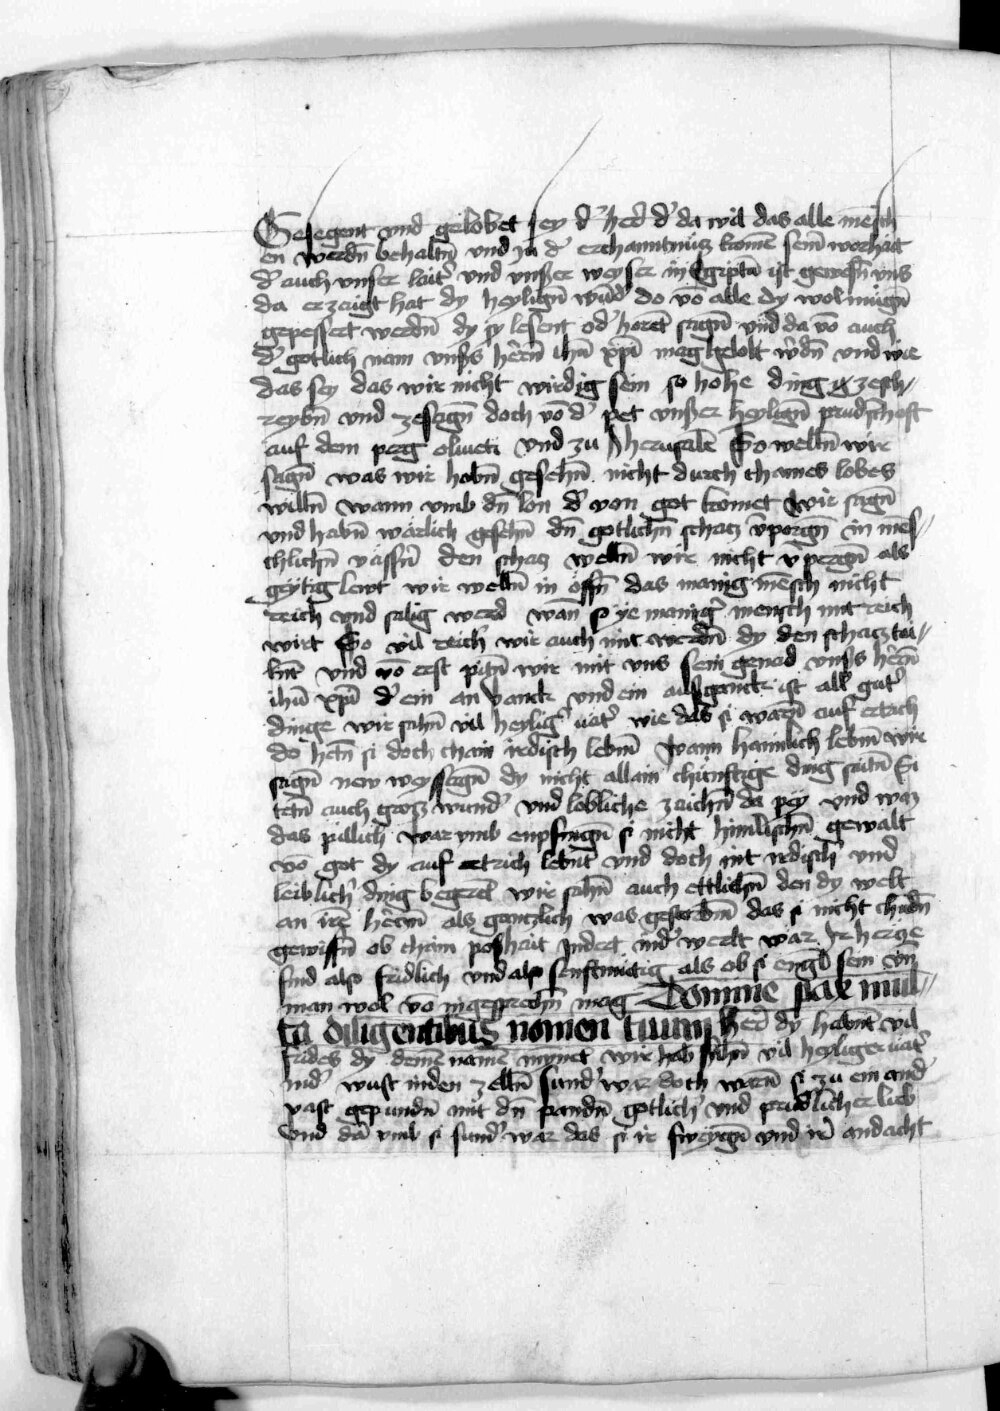 Gesegent vnd gelobet sey d' her̄ d' da wil das alle mēsch
en werdn̄ behaltn̄ vnd zu d' erchanntnüsz komē sein̄ worhait
d' auch vnser lait' vnd vnser weyser in Egiptō ist gewesn̄ vns
da erzaigt hat dy heylign̄ wūd' do vō alle dy wol mügn̄
gepessert werdn̄ dy sy lesent od' horēt sagn̄ vnd da vō auch
d' gotlich nam vnsƷs hērn̄ ihū xp̄i mag gelobt w'dn̄ vnd wie
das sey das wir nicht wirdig sein so hohe ding zesch//
reybn̄ vnd zesagn̄ doch vō d' pet vnser heylign̄ prudschoft
auf dem perg oliueti vnd zu Jherusalē So welln̄ wir
sagn̄ was wir habn̄ gesehn̄ nicht durch chaines lobes
willn̄ wann vmb dn̄ lon d' von got komet Wir sagn̄
vnd habn̄ wärlich gesehn̄ dn̄ gotlichn̄ schacz v̄porgn̄ in mēs//
chlichn̄ vässn̄ den schacz welln̄ wir nicht v̄pergn̄ als
geytig lewt wir welln̄ in öffn̄ das manig mēsch nicht
reich vnd salig werd wān so ye manig' mensch mit reich
wirt So vil reich' wir auch mit werdn̄ dy den schacz tai//
lnt vnd vō erst pitn̄ wir mit vns sein genad vnsƷs hērn̄
ihū xp̄i d' ein an vanck vnd ein ausganck ist all' gut'
dinge wir sahn̄ vil heylig' vät' wie das si warn̄ auf ertrich
do hetn̄ si doch chain irdisch lebm̄ Wann haimlich lebm̄ wir
sagn̄ new weyssagn̄ dy nicht allain chünftige ding saitn̄ Si
tetn̄ auch grosz wund' vnd lobliche zaichn̄ da pey vnd waz
das pillich war vmb enpfingn̄ si nicht himlischn̄ gewalt
vō got dy auf ertrich lebnt vnd doch nit irdisch' vnd
leiblich' ding begert wir sahn̄ auch ettlichn̄ den dy welt
an irē hērcn̄ als gantzlich was gestorbm̄ das si nicht chūdn̄
gewissn̄ ob chain poshait indert ind' werlt wär Jr hercze
sind also fridlich vnd also senftmütig als ob si engl̄ sein vn̄
man wol vō in gesprechn̄ mag Domine pax mul//
ta diligentibus nomen tuum her̄ dy habnt vil
frides dy deinē namē mynnet wir hab sahn̄ vil heyliger vät'
ind' wust inden zelln̄ sund' war doch warn̄ si zu ein and'
vast gepundn̄ mit dn̄ pandn̄ gotlich' vnd prudlicher lieb
vnd dā vmb si sund' war das si ir sweygn̄ vnd ir andacht